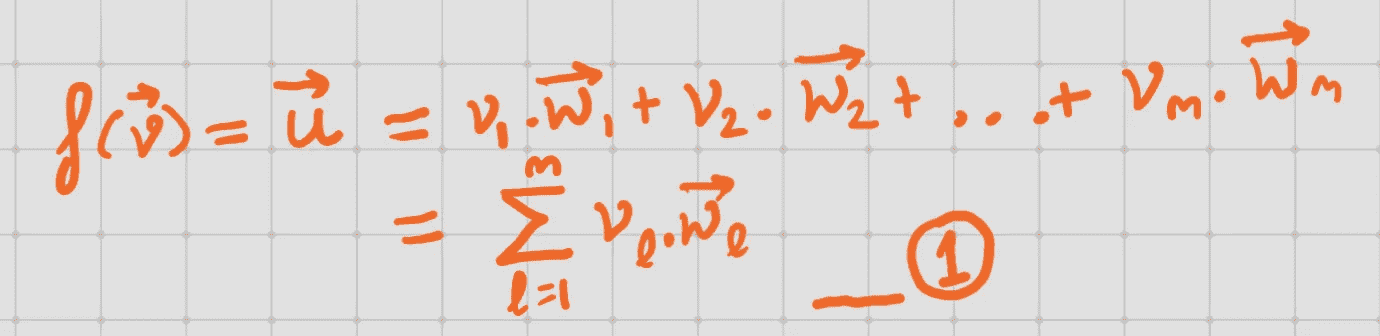 f(v⃗) = u⃗ = v₁.w⃗₁ + v₂.w⃗₂ + ... + vₘ.w⃗ₘ
= ∑ₗ₌₁ᵐ vₗ.w⃗ₗ — ①